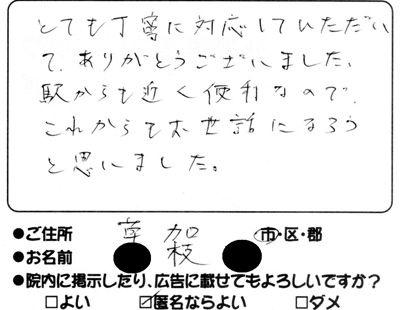 とても丁寧に対応していただい
て、ありがとうございました、
駅からも近く便利なので、
これからもお世話になろう
と思いました。
●ご住所 草加 市・区・郡
●お名前 枝
●院内に掲示したり、広告に載せてもよろしいですか？
□よい ☑匿名ならよい □ダメ